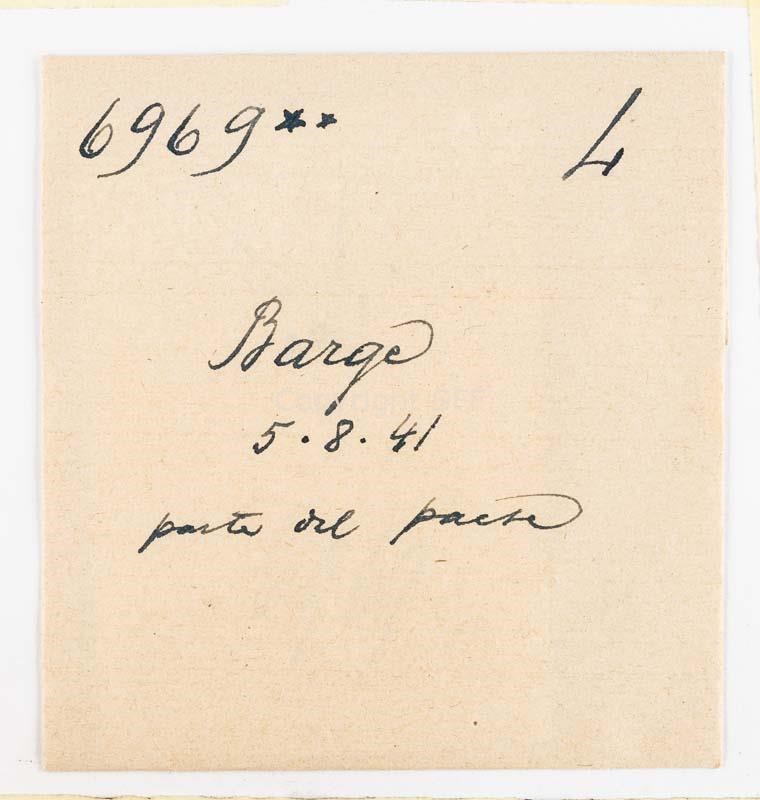 6969** L
Barge
5.8.41
parte del paese